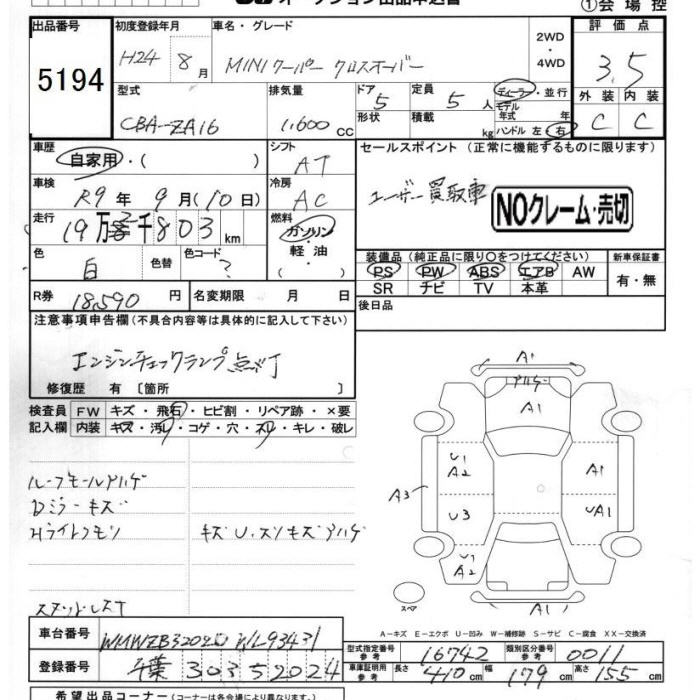 オークション出品申込書
①会場控
出品番号 5194
初度登録年月 H24 8月
車名・グレード MINI クーパー クロスオーバー
2WD・4WD
評価点 3.5
外装 C 内装 C
型式 CBA-ZA16
排気量 1,600 cc
ドア 5
形状
定員 5 人
積載 kg
ディーラー・並行
モデル年式 年
ハンドル 左・右
車歴 自家用・( )
シフト AT
車検 R9年 9月(10日)
冷房 AC
走行 19万 千803 km
燃料 ガソリン・軽油・( )
色 白 色替 色コード ?
R券 18,590 円 名変期限 月 日
セールスポイント (正常に機能するものに限ります)
ユーザー買取車
NOクレーム・売切
装備品 (純正品に限り○をつけてください) 新車保証書
PS PW ABS エアB AW
SR ナビ TV 本革
有・無
後日品
注意事項申告欄(不具合内容等は具体的に記入して下さい)
エンジンチェックランプ点灯
修復歴 有 〔箇所 〕
検査員記入欄
FW キズ・飛石・ヒビ割・リペア跡・×要
内装 キズ・汚レ・コゲ・穴・スリ・キレ・破レ
ルーフモールハゲ
Dミラーキズ
Hライトクモリ
キズU.スリキズハゲ
A1
ハゲ
A1
U1
A2
A1
A3
U3
UA1
U1
A2
A1
スペア
A-キズ E-エクボ U-凹み W-補修跡 S-サビ C-腐食 XX-交換済
車台番号
登録番号 千葉 303 す 2024
型式指定番号 参考 16742 類別区分番号 0011
車庫証明用 参考 長さ 410 cm 幅 179 cm 高さ 155 cm
希望出品コーナー(内容は各会場により異なります)